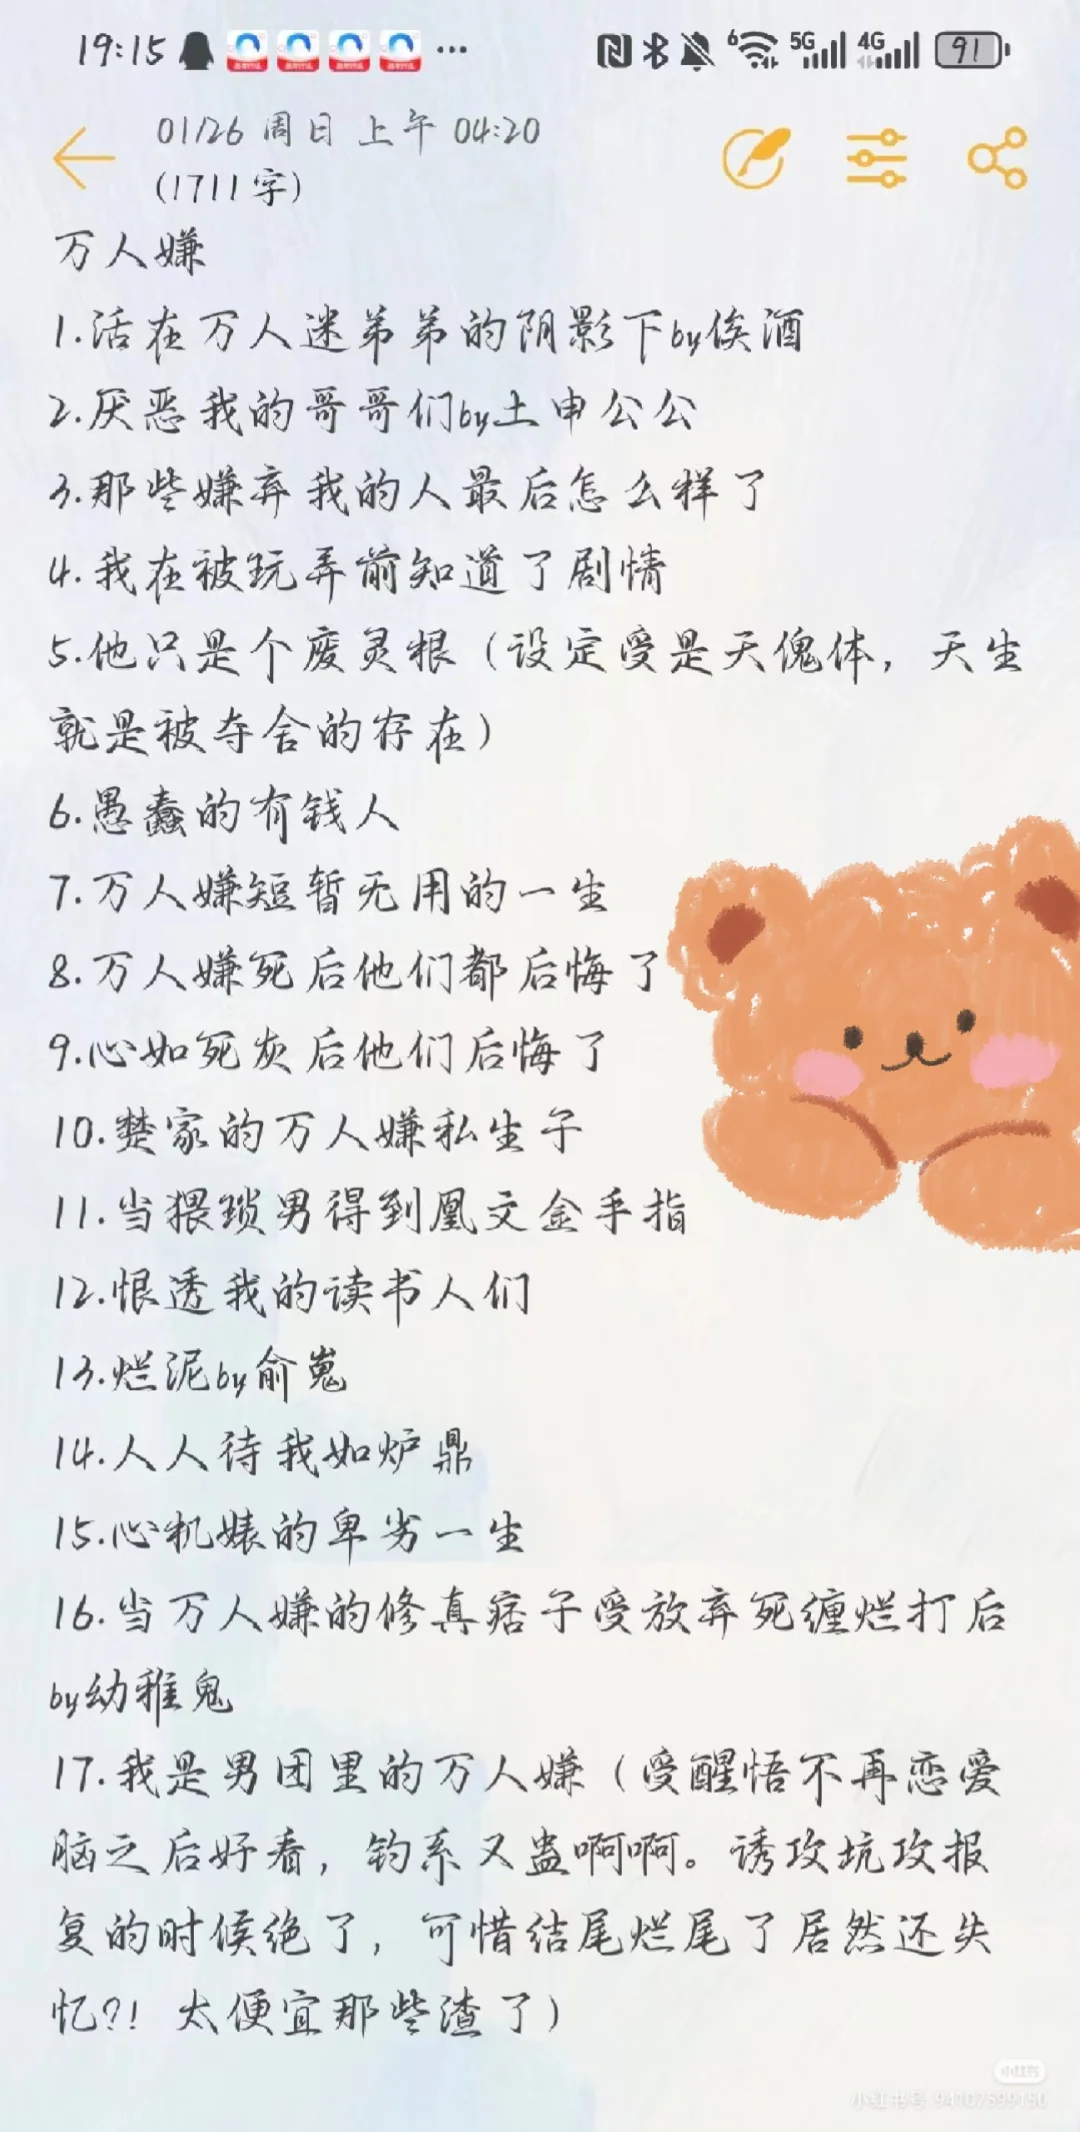 19:15 ... 6 5G 4G 91
01/26 周日 上午 04:20
(1711字)
万人嫌
1.活在万人迷弟弟的阴影下by俟酒
2.厌恶我的哥哥们by土申公公
3.那些嫌弃我的人最后怎么样了
4.我在被玩弄前知道了剧情
5.他只是个废灵根（设定受是天傀体，天生
就是被夺舍的存在）
6.愚蠢的有钱人
7.万人嫌短暂无用的一生
8.万人嫌死后他们都后悔了
9.心如死灰后他们后悔了
10.楚家的万人嫌私生子
11.当猥琐男得到凰文金手指
12.恨透我的读书人们
13.烂泥by俞嵬
14.人人待我如炉鼎
15.心机婊的卑劣一生
16.当万人嫌的修真痞子受放弃死缠烂打后
by幼稚鬼
17.我是男团里的万人嫌（受醒悟不再恋爱
脑之后好看，钓系又蛊啊啊。诱攻坑攻报
复的时候绝了，可惜结尾烂尾了居然还失
忆?！太便宜那些渣了）
小红书
小红书号 94107599150